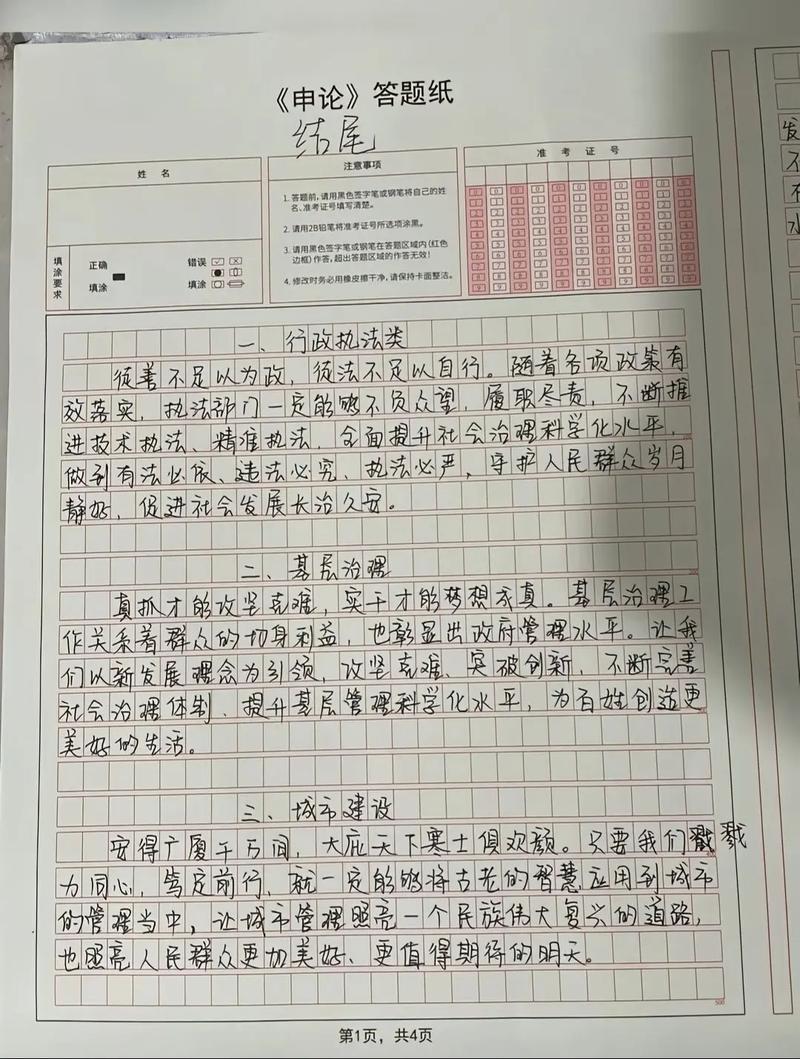 《申论》答题纸
结尾
姓 名
注意事项
准 考 证 号
1. 答题前,请用黑色签字笔或钢笔将自己的姓
名、准考证号填写清楚。
2. 请用2B铅笔将准考证号所选项涂黑。
3. 请用黑色签字笔或钢笔在答题区域内(红色
边框)作答,超出答题区域的作答无效!
4. 修改时务必用橡皮擦干净,请保持卡面整洁。
填涂要求
正确
填涂
错误
填涂
一、行政执法类
徒善不足以为政,徒法不足以自行。随着各项政策有
效落实,执法部门一定能够不负众望,履职尽责,不断推
进技术执法、精准执法,全面提升社会治理科学化水平,
做到有法必依、违法必究、执法必严,守护人民群众岁月
静好,促进社会发展长治久安。
二、基层治理
真抓才能攻坚克难,实干才能梦想成真。基层治理工
作关系着群众的切身利益,也彰显出政府管理水平。让我
们以新发展理念为引领,攻坚克难、突破创新,不断完善
社会治理体制、提升基层管理科学化水平,为百姓创造更
美好的生活。
三、城市建设
安得广厦千万间,大庇天下寒士俱欢颜。只要我们戮戮
力同心,笃定前行,就一定能够将古老的智慧应用到城市
的管理当中,让城市管理照亮一个民族伟大复兴的道路,
也照亮人民群众更加美好、更值得期待的明天。
500
第1页,共4页
发
不
水